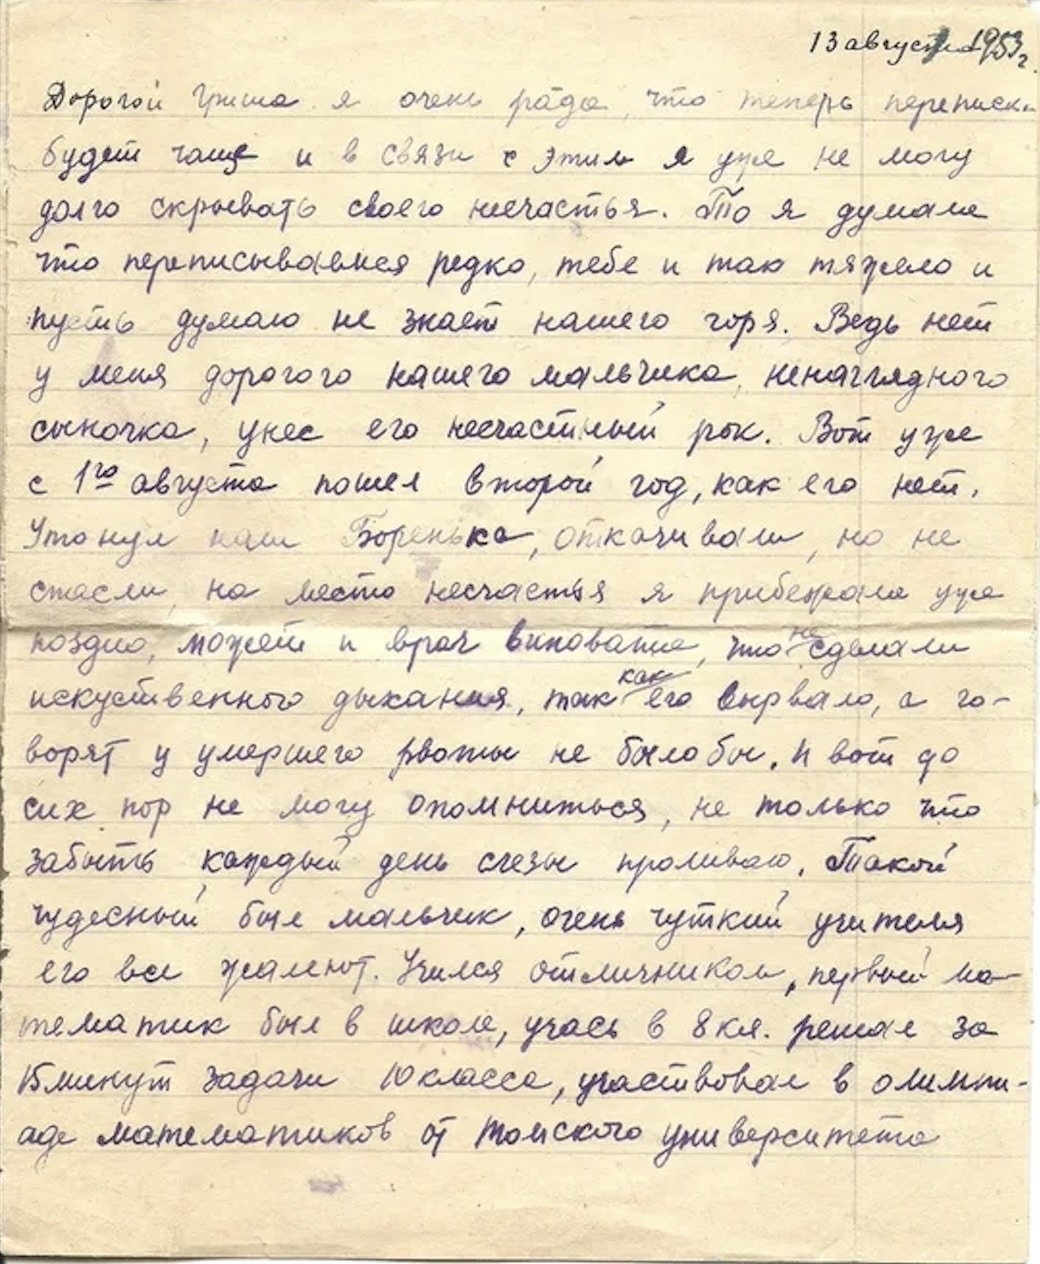 13 августа 1953 г.
Дорогой Гриша я очень рада, что теперь переписка
будет чаще и в связи с этим я уже не могу
долго скрывать своего несчастья. То я думала
что переписываемся редко, тебе и так тяжело и
пусть думаю не знает нашего горя. Ведь нет
у меня дорогого нашего мальчика, ненаглядного
сыночка, унес его несчастный рок. Вот уже
с 1го августа пошел второй год, как его нет.
Утонул наш Боренька, откачивали, но не
спасли, на место несчастья я прибежала уже
поздно, может и врач виновата, что не сделали
искуственного дыхания, так как его вырвало, а го-
ворят у умершего рвоты не было бы. И вот до
сих пор не могу опомниться, не только что
забыть каждый день слезы проливаю. Такой
чудесный был мальчик, очень чуткий учителя
его все жалеют. Учился отличником, первый ма-
тематик был в школе, учась в 8 кл. решал за
15 минут задачи 10 класса, участвовал в олимпи-
аде математиков от Томского университета